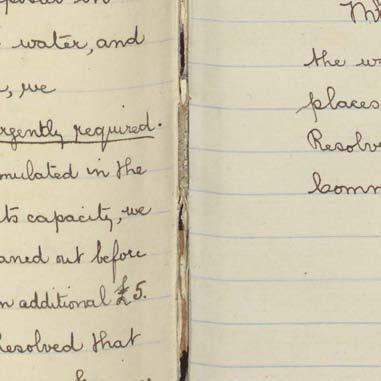 water, and
, we
urgently required.
mulated in the
its capacity, we
aned out before
n additional £5.
Resolved that
the w
places
Resolve
Comm